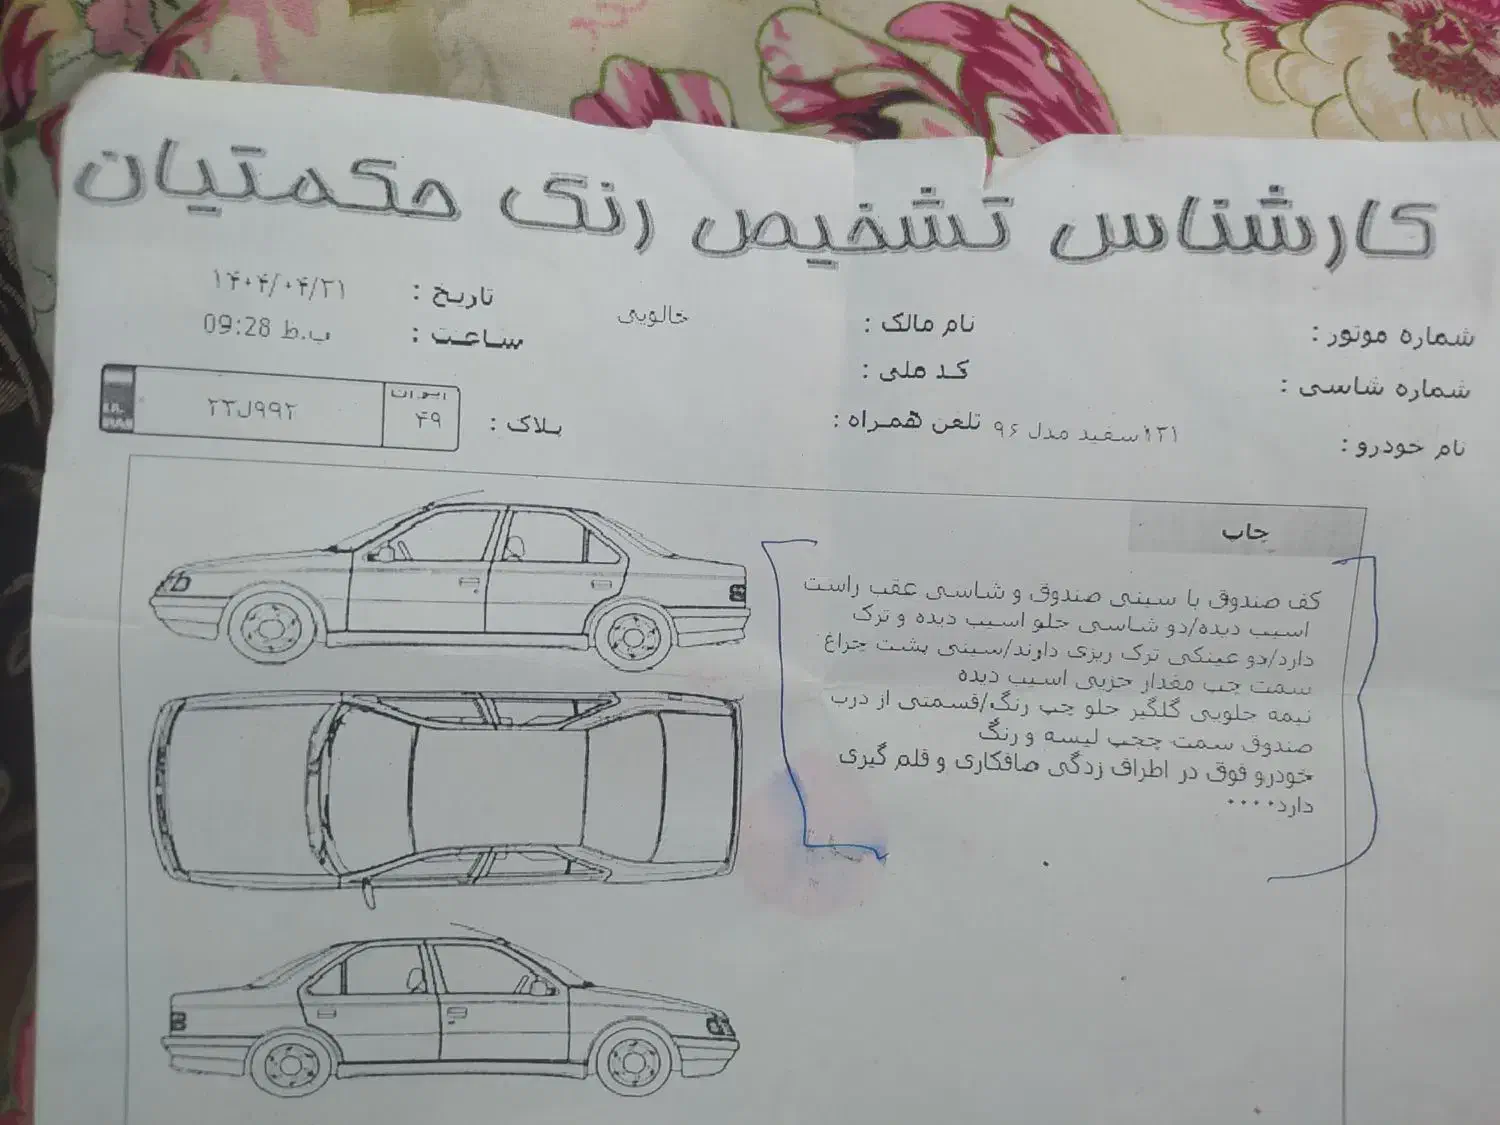 کارشناس تشخیص رنگ حکمتیان
شماره موتور :
نام مالک :
خالویی
تاریخ :
۱۴۰۴/۰۴/۲۱
شماره شاسی :
کد ملی :
ساعت :
09:28 ب.ظ
نام خودرو :
۱۳۱سفید مدل ۹۶
تلفن همراه :
پلاک :
ایران
۴۹
۲۳ل۹۹۲
I.R.
IRAN
چاپ
کف صندوق با سینی صندوق و شاسی عقب راست
اسیب دیده/دو شاسی جلو اسیب دیده و ترک
دارد/دو عینکی ترک ریزی دارند/سینی پشت چراغ
سمت چپ مقدار جزیی اسیب دیده
نیمه جلویی گلگیر جلو چپ رنگ/قسمتی از درب
صندوق سمت چجپ لیسه و رنگ
خودرو فوق در اطراف زدگی صافکاری و قلم گیری
دارد۰۰۰۰